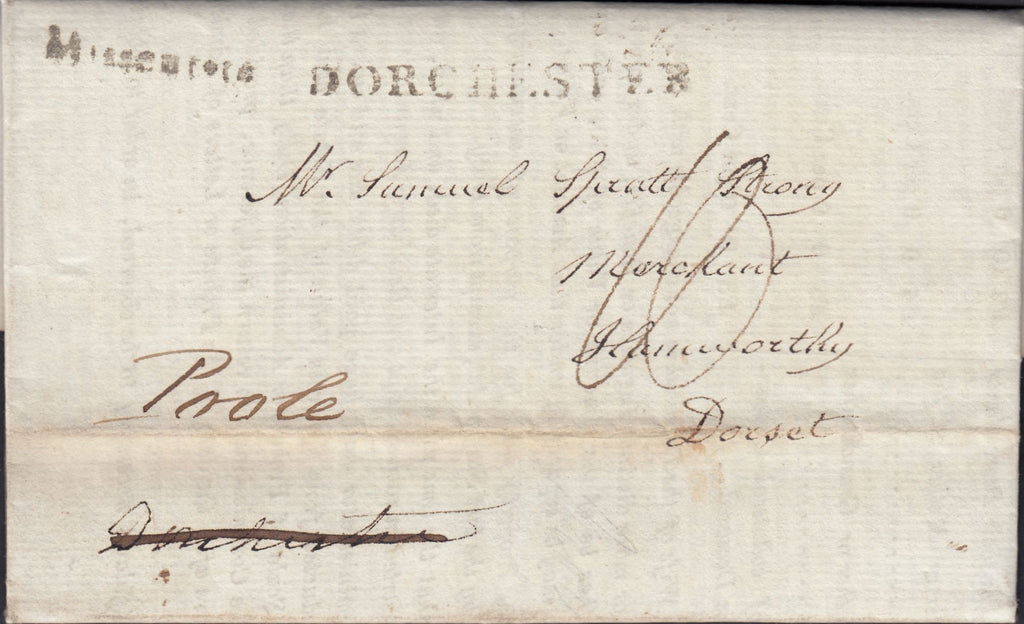 Missent to
DORCHESTER
Mr. Samuel Spratt Strong
Merchant
Hamworthy
Dorset
Prole
Dorchester